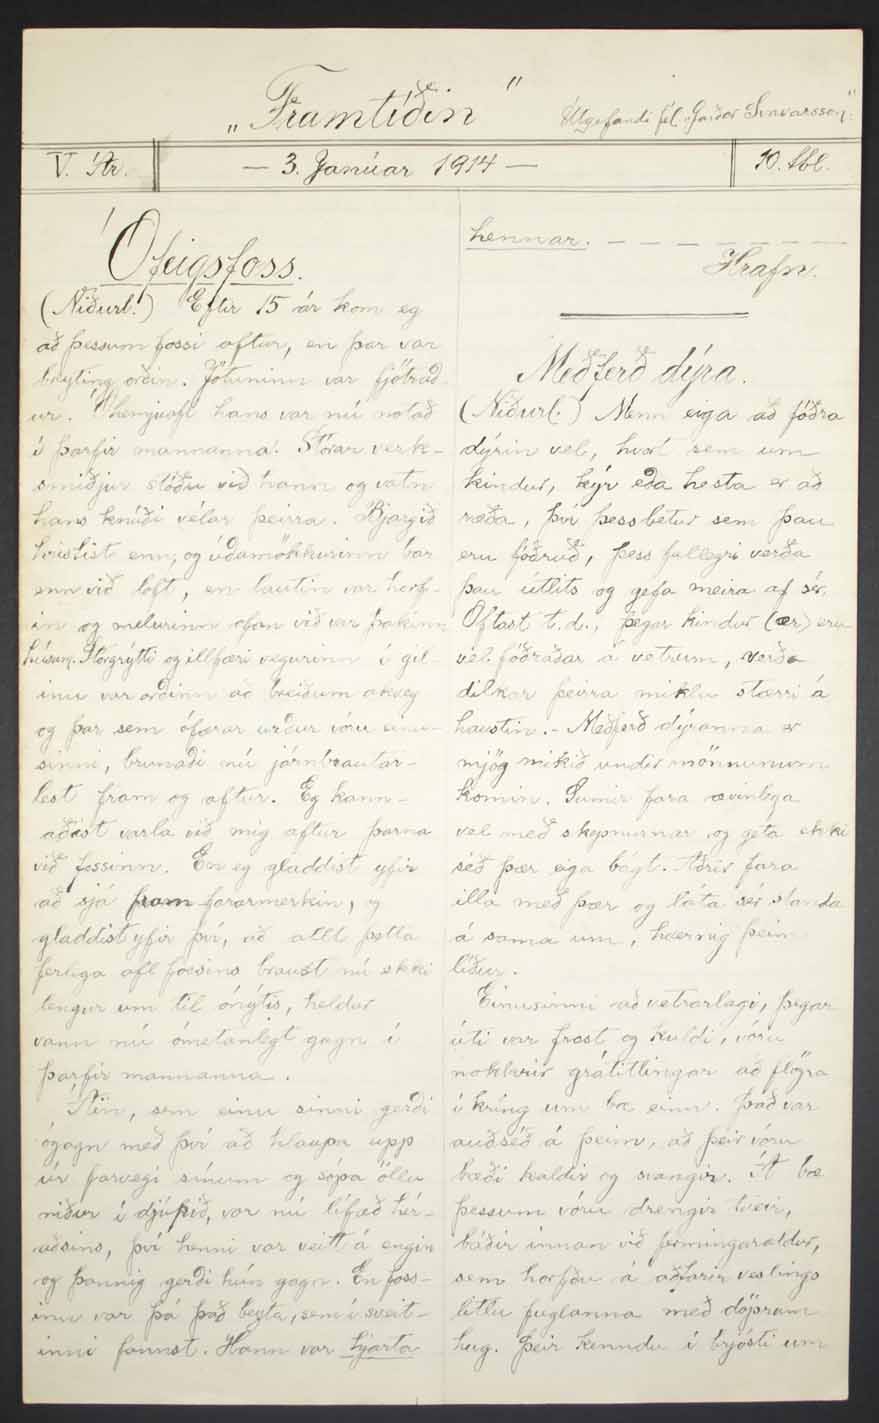 „Framtíðin"
Útgefandi fél. „Garðar Svavarsson"
V. Ár.
— 3. Janúar 1914 —
10. tbl.
Ófeigsfoss.
(Niðurl.) Eftir 15 ár kom eg
að þessum fossi aftur, en þar var
breyting orðin. Jötuninn var fjötrað-
ur. Ofhenjuafl hans var nú notað
í þarfir mannanna. Stórar verk-
smiðjur stóðu við hann og vatn
hans knúði vélar þeirra. Bjargið
hristist enn, og úðamökkurinn bar
enn við loft, en lautin var horf-
in og melurinn ofan við var þakinn
húsum. Stórgrýtti og illfæri vegurinn í gil-
inu var orðinn að breiðum akveg
og þar sem ófærar urður vóru einu-
sinni, brunaði nú járnbrautar-
lest fram og aftur. Eg kann-
aðist varla við mig aftur þarna
við fossinn. En eg gladdist yfir
að sjá framfararmerkin, og
gladdist yfir því, að allt þetta
ferlega afl fossins braust nú ekki
lengur um til ónýtis, heldur
vann nú ómetanlegt gagn í
þarfir mannanna.
Áin, sem einu sinni gerði
ógagn með því að hlaupa upp
úr farvegi sínum og sópa öllu
niður í djúpið, var nú lífæð hér-
aðsins, því henni var veitt á engin
og þannig gerði hún gagn. En foss-
inn var þá það besta, sem í sveit-
inni fannst. Hann var hjarta
hennar. — — — — — — —
Hrafn.
Meðferð dýra.
(Niðurl.) Menn eiga að fóðra
dýrin vel, hvort sem um
kindur, kýr eða hesta er að
ræða, því þess betur sem þau
eru fóðruð, þess fallegri verða
þau útlits og gefa meira af sér.
Oftast t.d., þegar kindur (ær) eru
vel fóðraðar á vetrum, verða
dilkar þeirra miklu stærri á
haustin. - Meðferð dýranna er
mjög mikið undir mönnunum
komin. Sumir fara ævinlega
vel með skepnurnar og geta ekki
séð þær eiga bágt. Aðrir fara
illa með þær og láta sér standa
á sama um, hvernig þeim
líður.
Einusinni að vetrarlagi, þegar
úti var frost og kuldi, vóru
nokkrir grátitlingar að flögra
í kring um bæ einn. Það var
auðséð á þeim, að þeir vóru
bæði kaldir og svangir. Á bæ
þessum vóru drengir tveir,
báðir innan við fermingaraldur,
sem horfðu á aðfarir veslings
litlu fuglanna með döprum
hug. Þeir kenndu í brjósti um